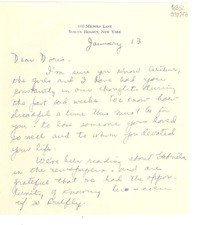 115 Meadow Lane
January 13
Dear Doris,
I'm sure you know Arthur,
the girls and I have had you
constantly in our thoughts during
the past sad weeks. We know how
dreadful a time this must be for
you - to lose someone you loved
so well and to whom you devoted
your life.
We've been reading about Gabriela
in the newspapers, and are
grateful that we had the oppor-
tunity of knowing her - even
if so briefly.